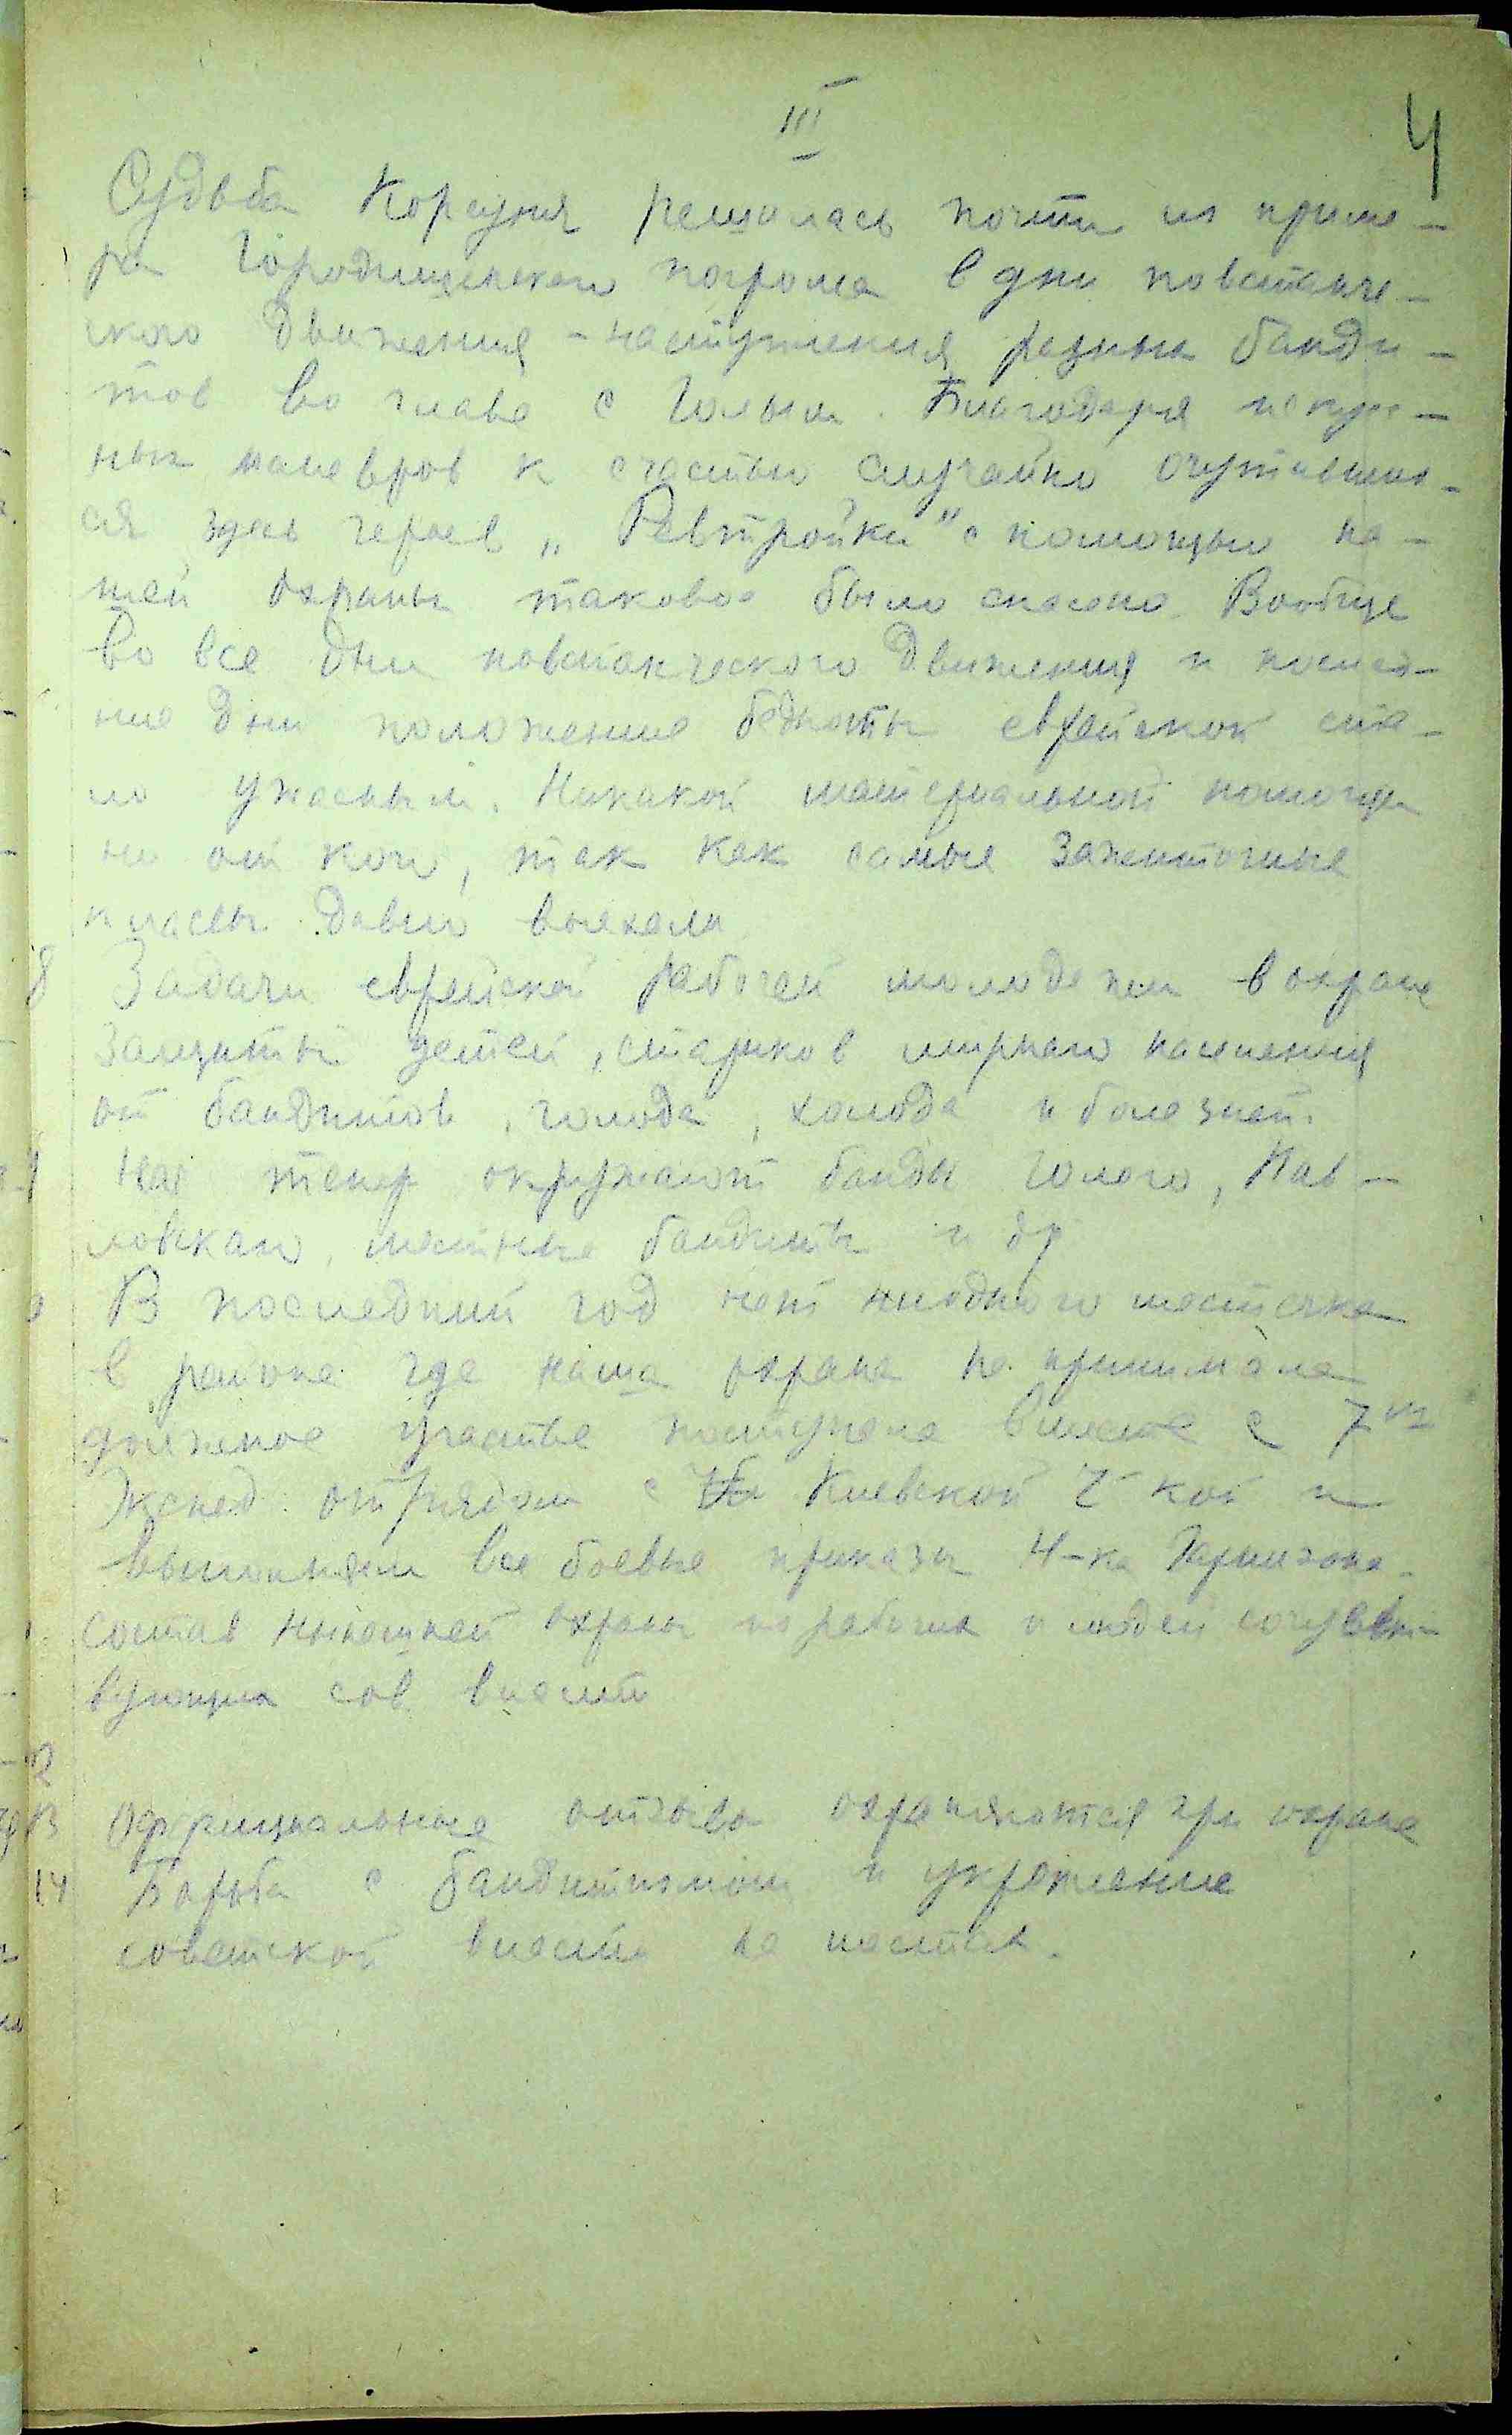 III
4
Судьба Корсуня решалась почти из приме-
ра Городищенского погрома в дни повстанче-
ского движения - наступления разных банди-
тов во главе с Голым. Благодаря искус-
ных маневров к счастью случайно очутивших-
ся здесь героев „Ревтройки" с помощью на-
шей охраны таковое было спасено. Вообще
во все дни повстанческого движения и послед-
ние дни положение бедноты еврейской ста-
ло ужасным. Никакой материальной помощи
ни от кого, так как самые зажиточные
классы давно выехали
8 Задачи еврейской рабочей молодежи в охране
защиты детей, стариков мирного населения
от бандитов, голода, холода и болезней.
Нас тепер окружают банды Голого, Пав-
ловскаго, местные бандиты и др
В последний год нет ниодного местечка
в районе где наша охрана не принимала
должное участие вместе с 7м
Экспед. отрядом с Киевской Ч кой и
выполняем все боевые приказы Н-ка Гарнизона.
Состав нынешней охраны из рабочих и людей сочувст-
вующих сов. власти
12
13 Оффициальные отзывы охраняются при охране
14 Борьба с бандитизмом и укрепление
советской власти на местах.